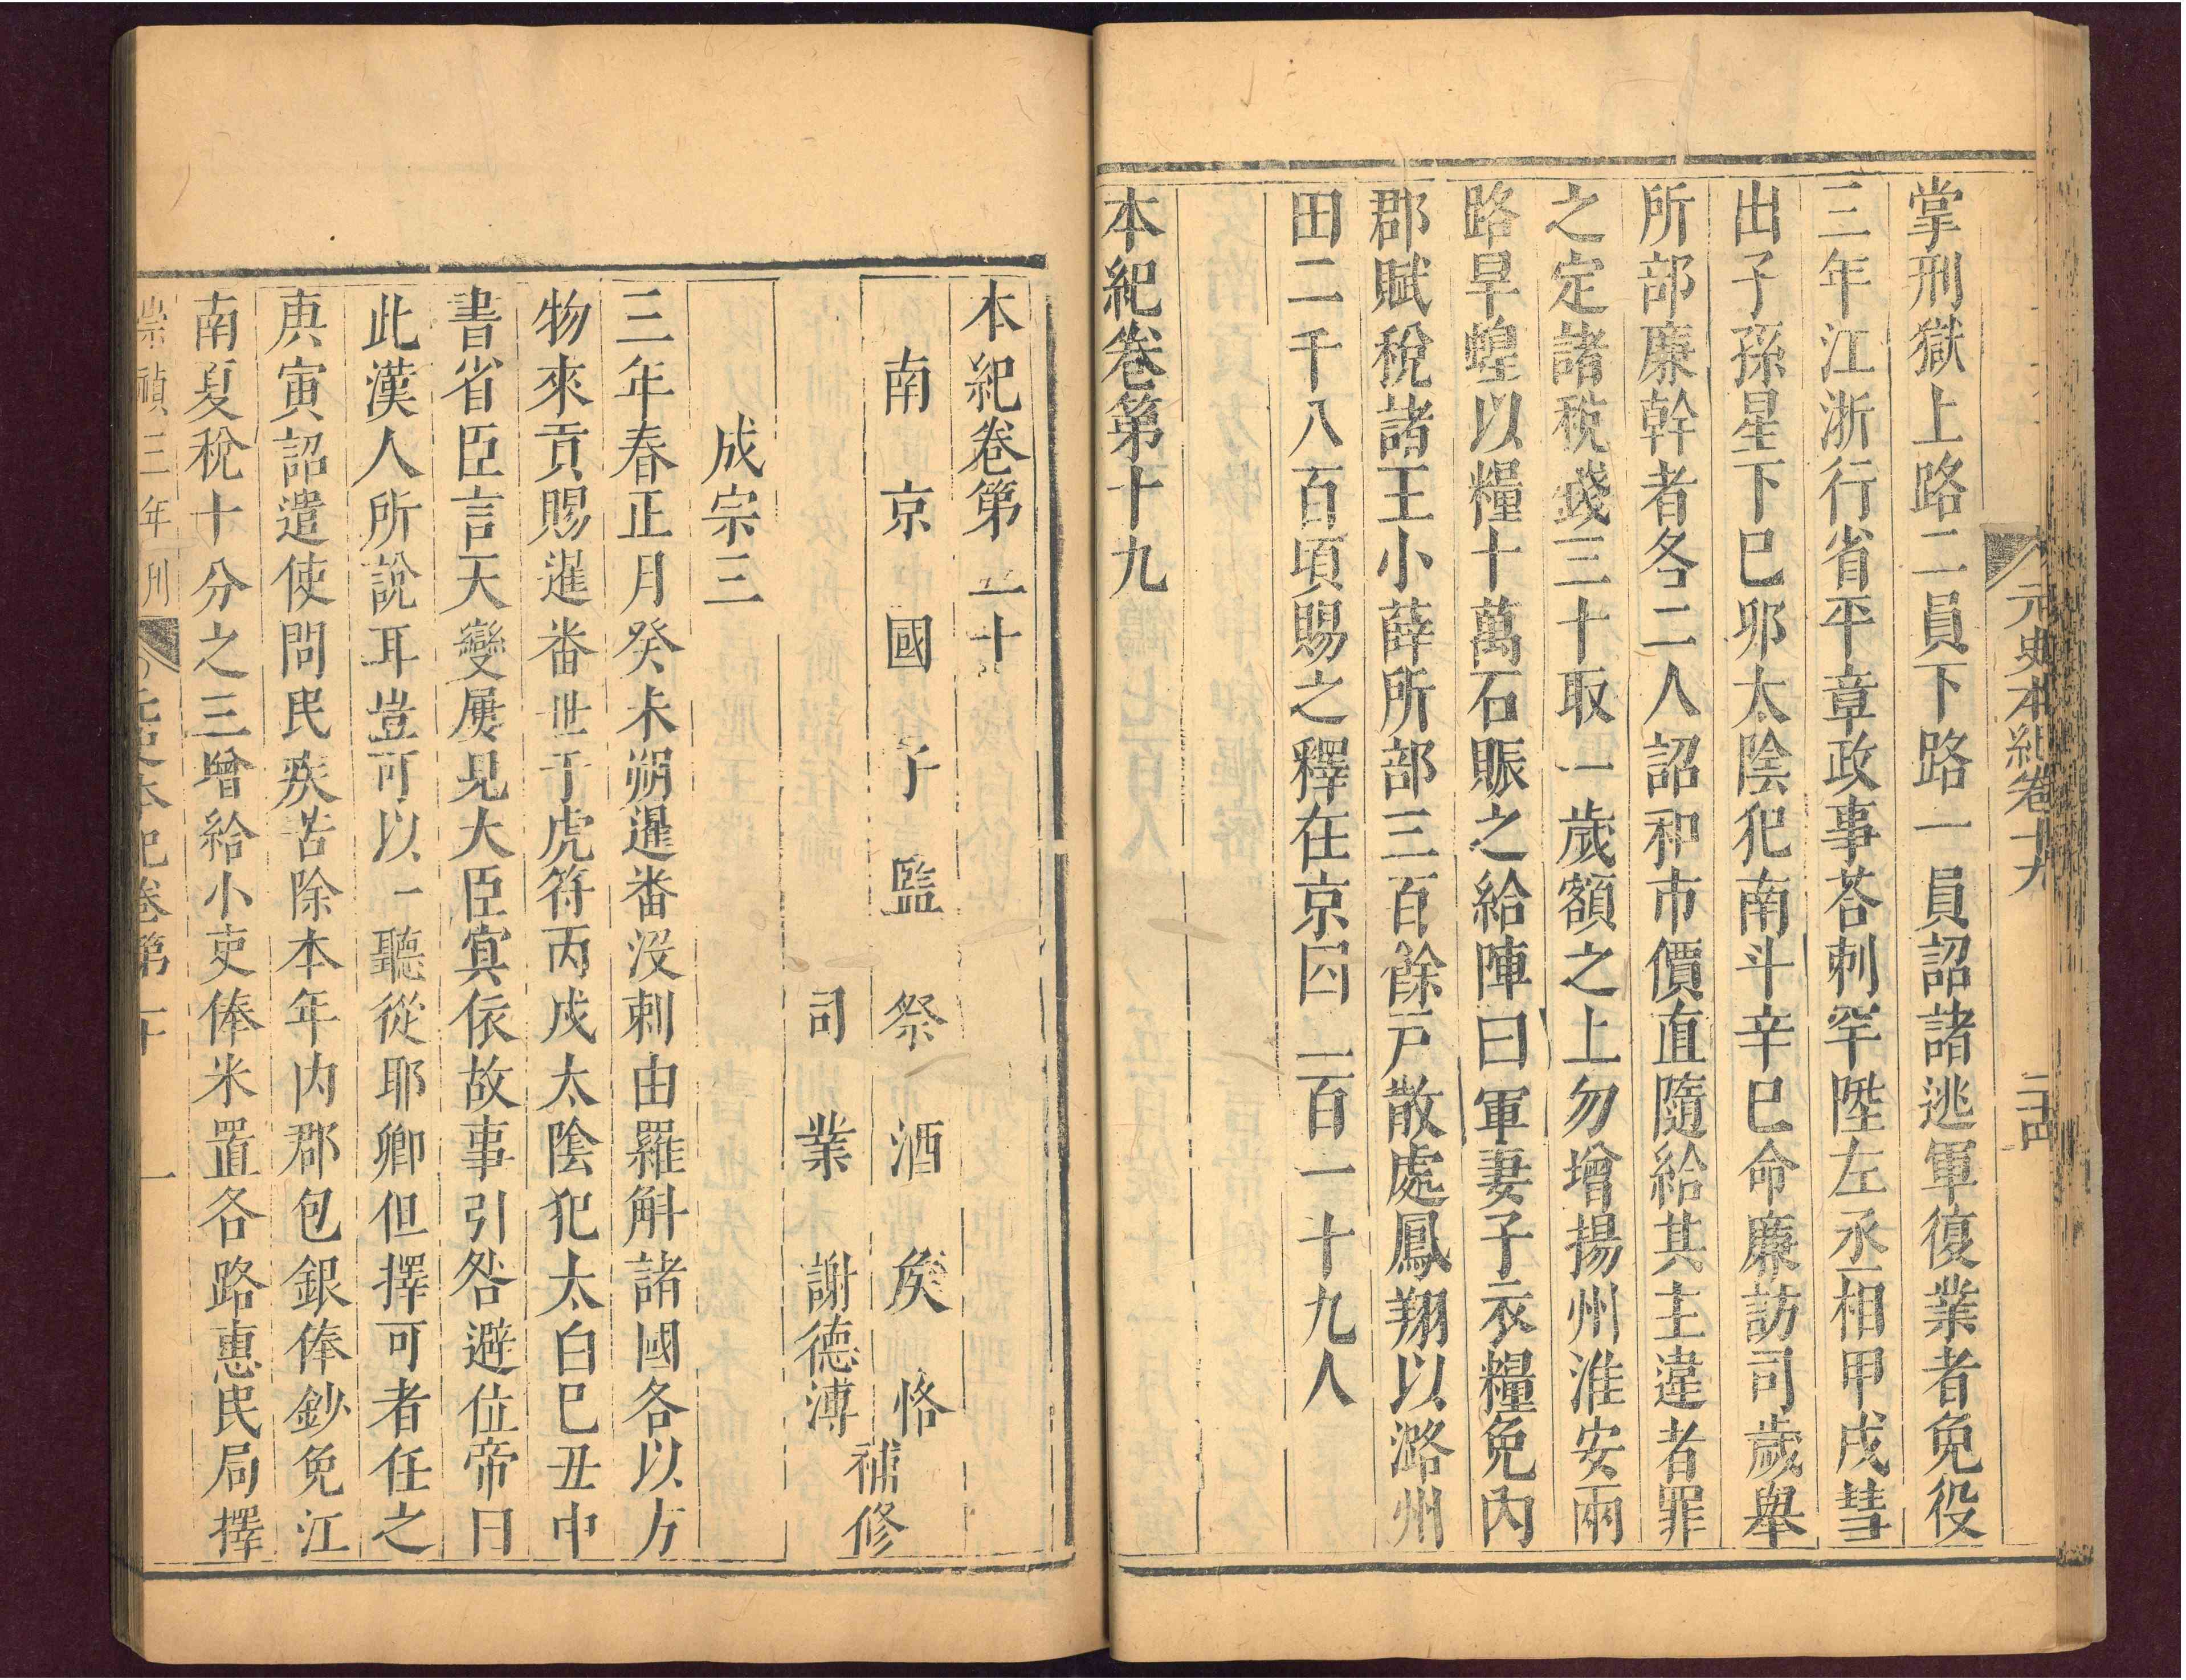 元史本紀卷十九
二十四
掌刑獄上路二員下路一員詔諸逃軍復業者免役
三年江浙行省平章政事荅刺罕陞左丞相甲戌彗
出子孫星下巳夘太陰犯南斗辛巳命廉訪司歲舉
所部廉幹者各二人詔和市價直隨給其主違者罪
之定諸稅錢三十取一歲額之上勿增揚州淮安兩
路旱蝗以糧十萬石賑之給陣曰軍妻子衣糧免內
郡賦稅諸王小薛所部三百餘戸散處鳳翔以潞州
田二千八百頃賜之釋在京囚二百一十九人
本紀卷第十九
本紀卷第二十
南京國子監祭酒矦恪
司業謝德溥
補修
成宗三
三年春正月癸未朔暹番沒剌由羅斛諸國各以方
物來貢賜暹番世子虎符丙戌太陰犯太白巳丑中
書省臣言天變屢見大臣宜依故事引咎避位帝曰
此漢人所說耳豈可以一聽從耶卿但擇可者任之
庚寅詔遣使問民疾苦除本年内郡包銀俸鈔免江
南夏稅十分之三增給小吏俸米置各路惠民局擇
崇禎三年刊
元史本紀卷第二十
一